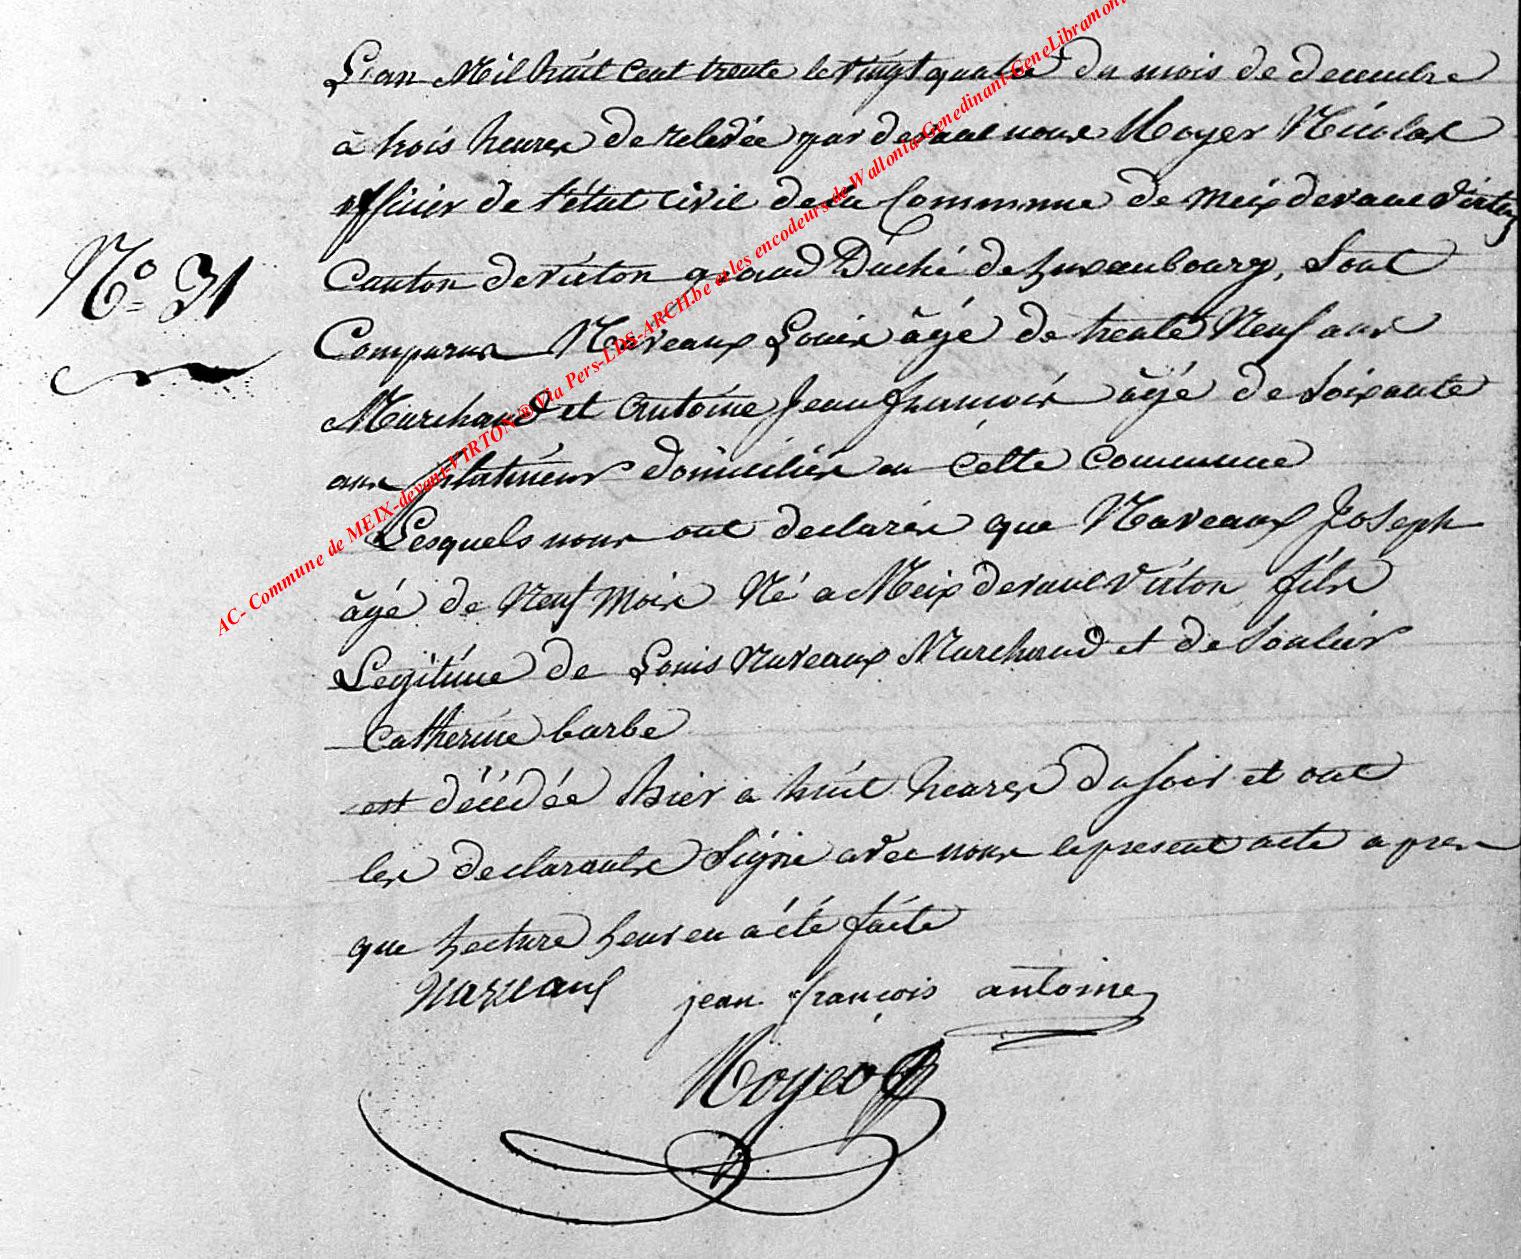 L'an Mil huit cent trente le vingt quatre du mois de decembre
à trois heures de relevée par devant nous Noyer Nicolas
officier de l'état civil de la Commune de meix devant Virton
N° 31
Canton de virton grand Duché de Luxembourg, Sont
Comparus Naveaux Louis âgé de trente Neuf ans
Marchand et Antoine Jean françois âgé de Soixante
ans domiciliés en cette commune
Lesquels nous ont declarés que Naveaux Joseph
âgé de Neuf mois Né a Meix devant Virton fils
Legitime de Louis Naveaux Marchand et de Soulier
Catherine barbe
est décédée hier a huit heures du soir et ont
les declarants Signé avec nous le present acte apres
que Lecture leur en a été faite
Naveaux jean françois antoine
Noyer
AC- Commune de MEIX-devant-VIRTON ® Via Pers-LDS-ARCH.be et les encodeurs de Wallonia-Genedinant-GeneLibramont